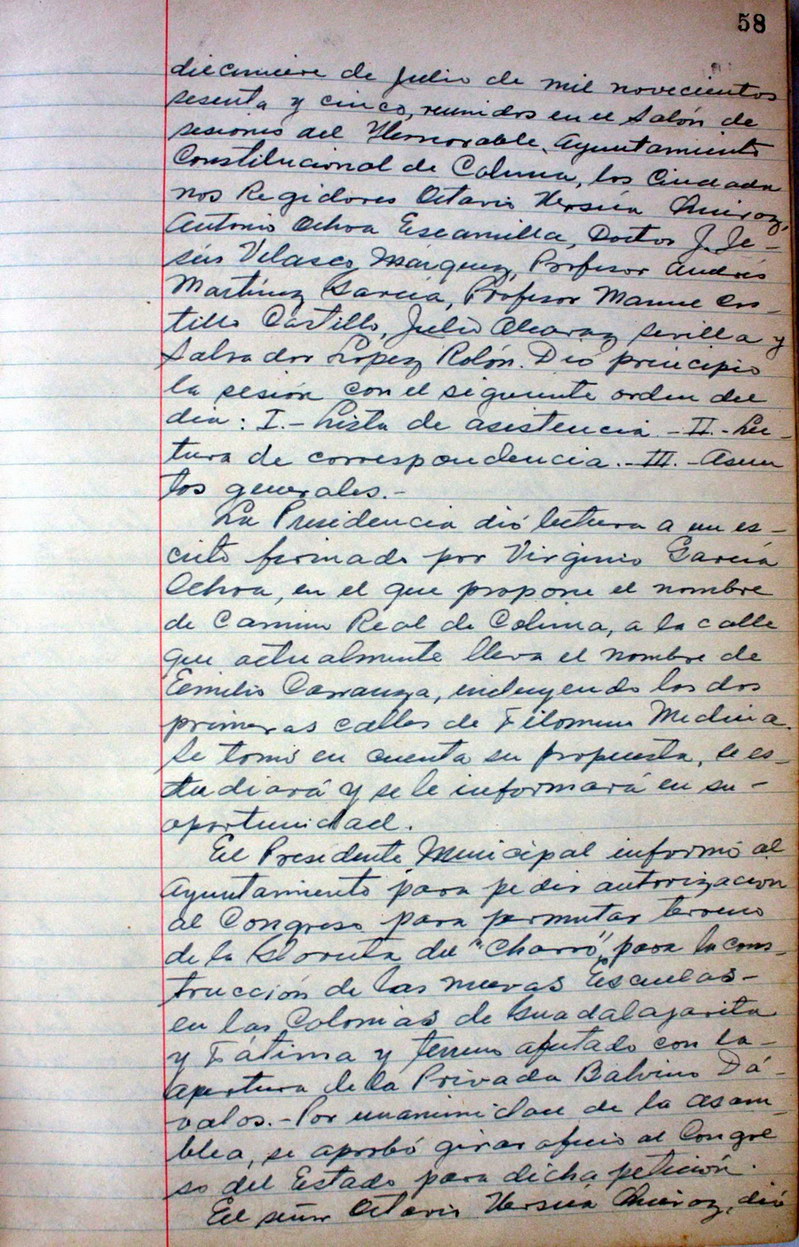 58
diecinueve de Julio de mil novecientos
sesenta y cinco, reunidos en el Salón de
sesiones del Honorable Ayuntamiento
Constitucional de Colima, los Ciudada
nos Regidores Octavio Ursúa Quiroz,
Antonio Ochoa Escamilla, Doctor J. Je-
sús Velasco Márquez, Profesor Andrés
Martínez García, Profesor Manuel Cas-
tillo Castillo, Julio Alvarez Sevilla y
Salvador López Rolón. Dió principio
la sesión con el siguiente orden del
dia: I.- Lista de asistencia.- II.- Lec-
tura de correspondencia.- III.- Asun
tos generales.-
La Presidencia dió lectura a un es-
crito firmado por Virginio García
Ochoa, en el que propone el nombre
de Camino Real de Colima, a la calle
que actualmente lleva el nombre de
Emilio Carranza, incluyendo las dos
primeras calles de Filomeno Medina.
Se tomó en cuenta su propuesta, se es-
tudiará y se le informará en su-
oportunidad.
El Presidente Municipal informó al
Ayuntamiento para pedir autorización
al Congreso para permutar terreno
de la Glorieta del "Charro", para la cons-
trucción de las nuevas Escuelas-
en las Colonias de Guadalajarita
y Fátima y terreno afectado con la-
apertura de la Privada Balvino Dá-
valos.- Por unanimidad de la asam-
blea, se aprobó girar oficio al Congre
so del Estado para dicha petición.
El señor Octavio Ursúa Quiroz, dió